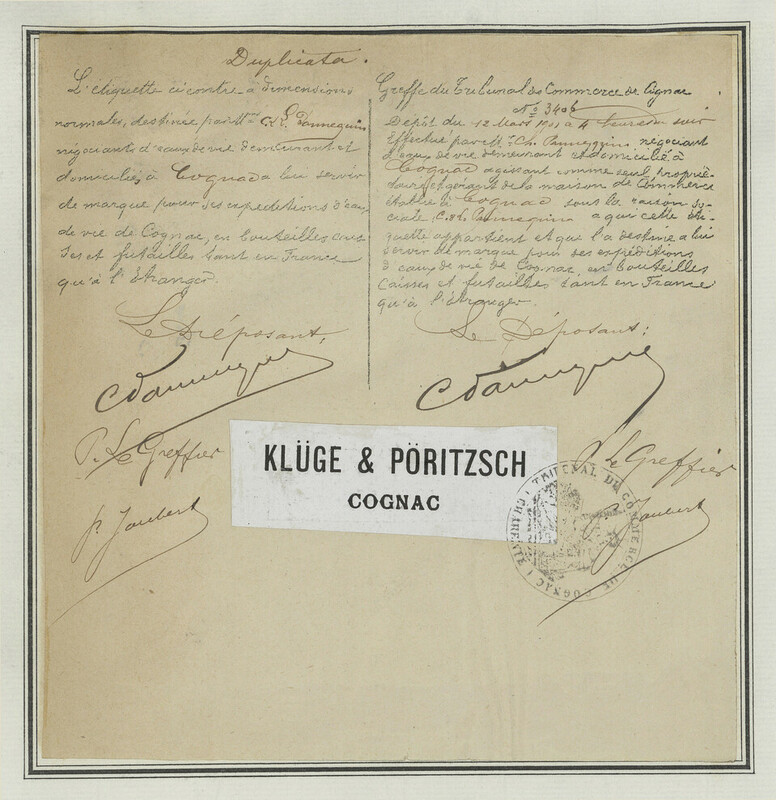 Duplicata.
L'étiquette ci contre à dimensions
normales, destinée par Mr. C. & L. Dannequin
négociant d'eaux de vie demeurant et
domicilié à Cognac a lui servir
de marque pour ses expéditions d'eaux
de vie de Cognac, en bouteilles cais
ses et futailles tant en France
qu'à l'étranger.
Le Déposant,
P. Le Greffier
p. Joubert
Greffe du Tribunal de Commerce de Cognac
No 3406
Dépôt du 12 1901 à 4 heures du soir
Effectué par Mr. Ch. négociant
d'eaux de vie demeurant et domicilié à
Cognac agissant comme seul proprié-
taire et gérant de la maison de Commerce
établie à Cognac sous la raison so-
ciale, C. & L. a qui cette éti-
quette appartient et qui l'a destine a lui
servir de marque pour ses expéditions
d'eaux de vie de Cognac, en bouteilles
caisses et futailles tant en France
qu'à l'étranger.
Le Déposant:
P. Le Greffier
p. Joubert
KLÜGE & PÖRITZSCH
COGNAC
TRIBUNAL DU COMMERCE DE COGNAC (CHARENTE)